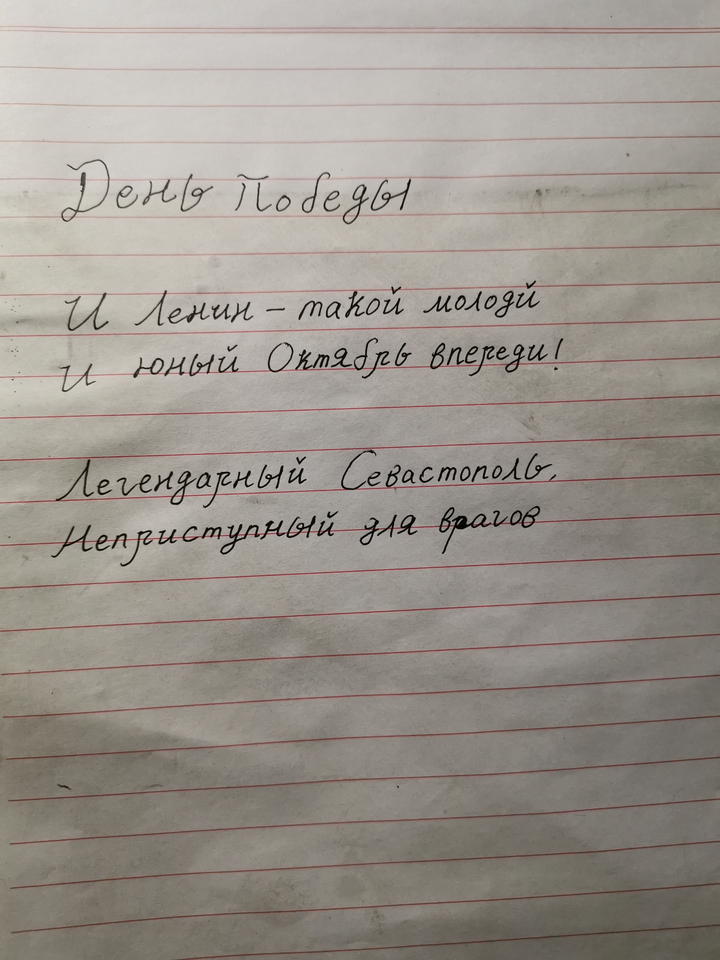 День Победы
И Ленин – такой молодй
И юный Октябрь впереди!
Легендарный Севастополь,
Неприступный для врагов